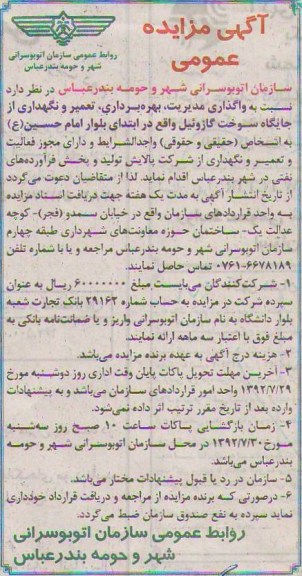 آگهی مزایده
عمومی
روابط عمومی سازمان اتوبوسرانی
شهر و حومه بندرعباس
سازمان اتوبوسرانی شهر و حومه بندرعباس در نظر دارد
نسبت به واگذاری مدیریت، بهره‌برداری، تعمیر و نگهداری از
جایگاه سوخت گازوئیل واقع در ابتدای بلوار امام حسین(ع)
به اشخاص (حقیقی و حقوقی) واجدالشرایط و دارای مجوز فعالیت
و تعمیر و نگهداری از شرکت پالایش تولید و پخش فرآورده‌های
نفتی در شهر بندرعباس اقدام نماید. لذا از متقاضیان دعوت می‌گردد
از تاریخ انتشار آگهی به مدت یک هفته جهت دریافت اسناد مزایده
به واحد قراردادهای سازمان واقع در خیابان سمدو (فجر)- کوچه
عدالت یک- ساختمان حوزه معاونت‌های شهرداری طبقه چهارم
سازمان اتوبوسرانی شهر و حومه بندرعباس مراجعه و یا با شماره تلفن
۶۶۷۸۱۸۹-۰۷۶۱ تماس حاصل نمایند.
۱- شرکت‌کنندگان می‌بایست مبلغ ۶۰۰۰۰۰۰۰ ریال به عنوان
سپرده شرکت در مزایده به حساب شماره ۲۹۱۶۲ بانک تجارت شعبه
بلوار دانشگاه به نام سازمان اتوبوسرانی واریز و یا ضمانت‌نامه بانکی به
مبلغ فوق با اعتبار سه ماهه ارائه نمایند.
۲- هزینه درج آگهی به عهده برنده مزایده می‌باشد.
۳- آخرین مهلت تحویل پاکات پایان وقت اداری روز دوشنبه مورخ
۱۳۹۲/۷/۲۹ واحد امور قراردادهای سازمان می‌باشد و به پیشنهادات
وارده بعد از تاریخ مقرر ترتیب اثر داده نمی‌شود.
۴- زمان بازگشایی پاکات ساعت ۱۰ صبح روز سه‌شنبه
مورخ ۱۳۹۲/۷/۳۰ در محل سازمان اتوبوسرانی شهر و حومه
بندرعباس می‌باشد.
۵- سازمان در رد یا قبول پیشنهادات مختار می‌باشد.
۶- درصورتی که برنده مزایده از مراجعه و دریافت قرارداد خودداری
نماید سپرده به نفع صندوق سازمان ضبط می‌گردد.
روابط عمومی سازمان اتوبوسرانی
شهر و حومه بندرعباس